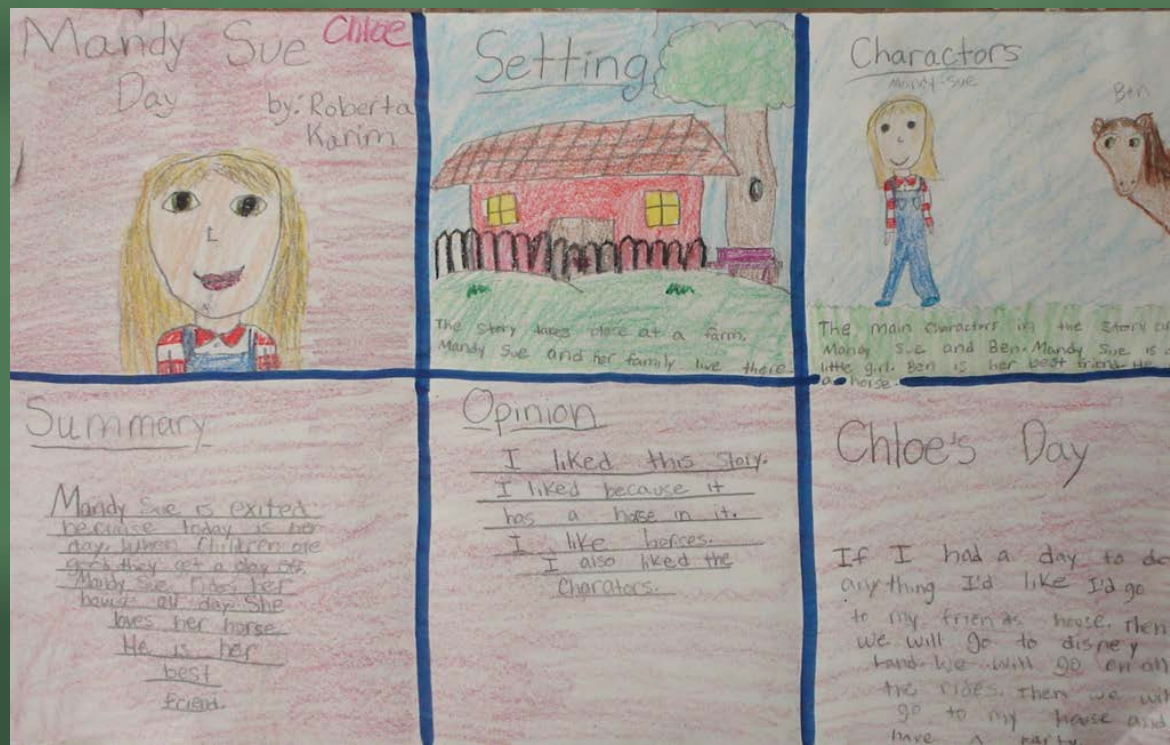 Mandy Sue Chloe
Day
by: Roberta
Karim
Setting
The story takes place at a farm.
Mandy Sue and her family live there.
Charactors
Mandy-Sue
Ben
The main charactors in the story
Mandy Sue and Ben. Mandy Sue is
little girl. Ben is her best friend. He
a horse.
Summary
Mandy Sue is exited
because today is her
day. When children are
good they get a day off.
Mandy Sue rides her
all day. She
loves her horse
He is her
best
friend.
Opinion
I liked this story.
I liked because it
has a horse in it.
I like horses.
I also liked the
Charators.
Chloe's Day
If I had a day to do
anything I'd like I'd go
to my friends house. Then
we will go to disney
land. We will go on all
the rides. Then we will
go to my house and
have a party